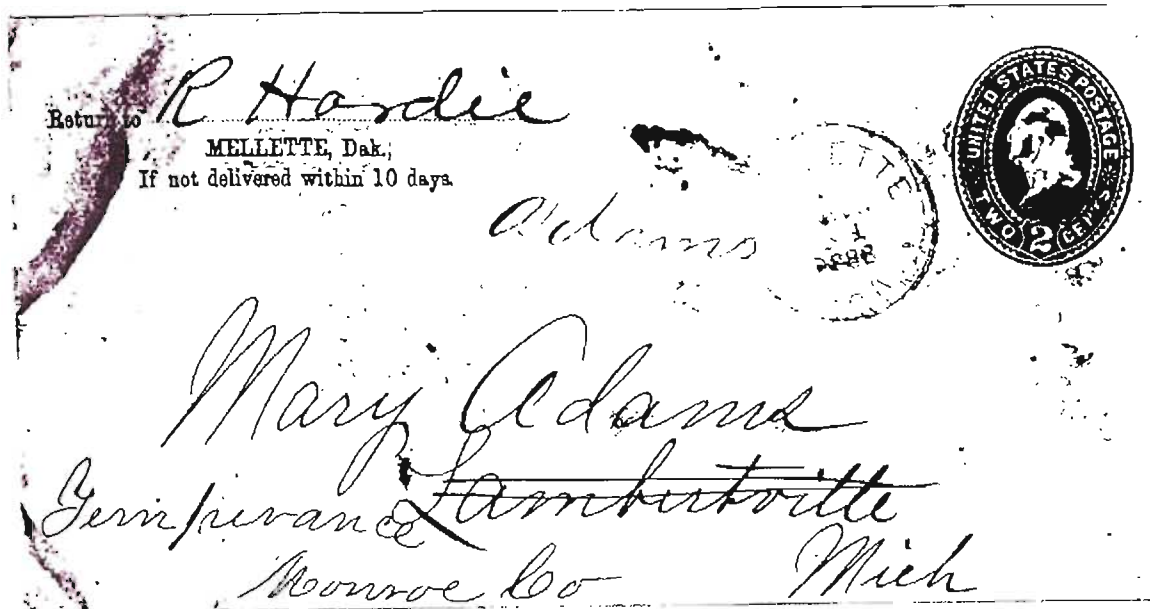 Return to R Hardie
MELLETTE, Dak.,
If not delivered within 10 days.
UNITED STATES POSTAGE
TWO 2 CENTS
ETTE
1888
Adams
Mary Adams
Lambertville
Temperance
Monroe Co Mich